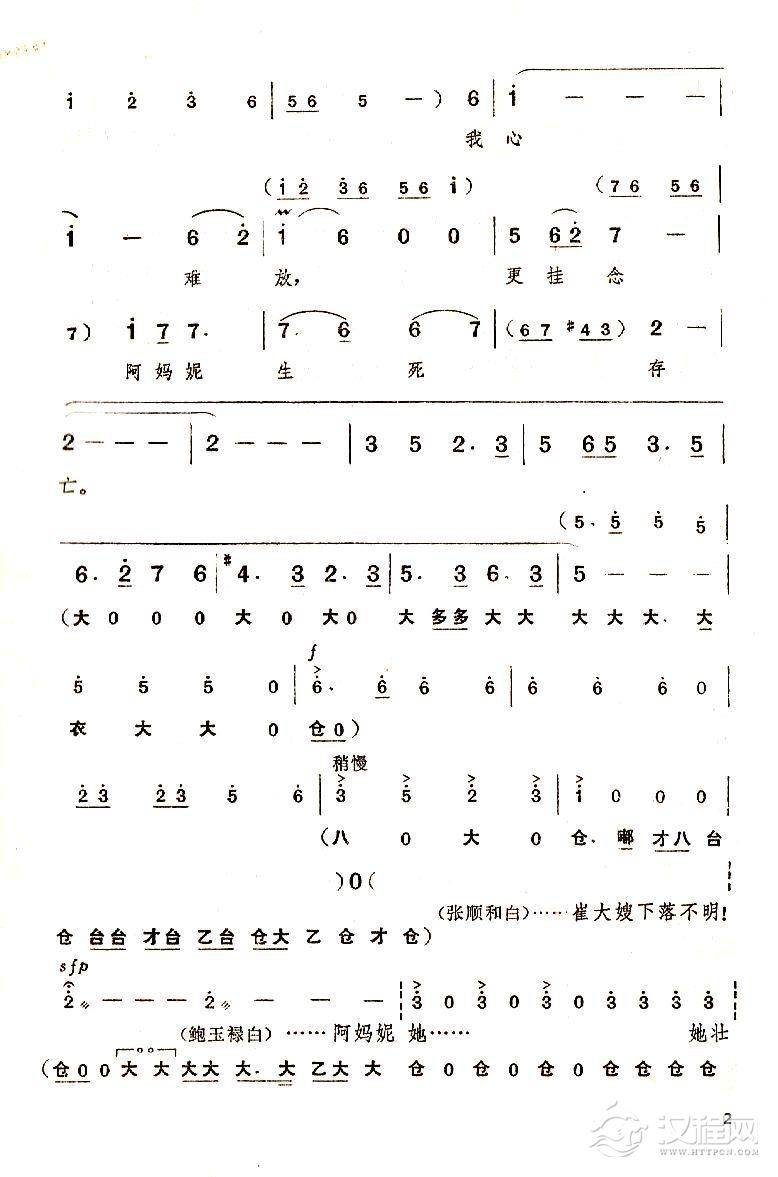 1 2 3 6 | 56 5 — ) 6 | 1 — — —
我 心
( 12 36 56 1 ) ( 76 56
1 — 6 2 | 1 6 0 0 | 5 62 7 —
难 放， 更 挂 念
7 ) 1 7 7. | 7. 6 6 7 | ( 67 #43 ) 2 —
阿 妈 妮 生 死 存
2 — — — | 2 — — — | 3 5 2. 3 | 5 65 3. 5
亡。
( 5. 5 5 5
6. 2 7 6 | #4. 3 2. 3 | 5. 3 6. 3 | 5 — — —
( 大 0 0 0 大 0 大 0 大 多多 大 大 大 大 大. 大
f
5 5 5 0 | 6. 6 6 6 | 6 6 6 0
衣 大 大 0 仓 0 )
稍慢
23 23 5 6 | 3 5 2 3 | 1 0 0 0
( 八 0 大 0 仓. 嘟 才八 台
) 0 (
(张顺和白)……崔大嫂下落不明！
仓 台台 才台 乙台 仓大 乙 仓 才 仓 )
sfp
2 — — — 2 — — — 3 0 3 0 3 0 3 0 3 3 3 3
(鲍玉禄白)……阿妈妮 她…… 她壮
( 仓 0 0 大 大 大大 大. 大 乙大 大 仓 0 仓 0 仓 0 仓 0 仓 仓 仓 仓
2
汉程网
WWW.HTTPCN.COM